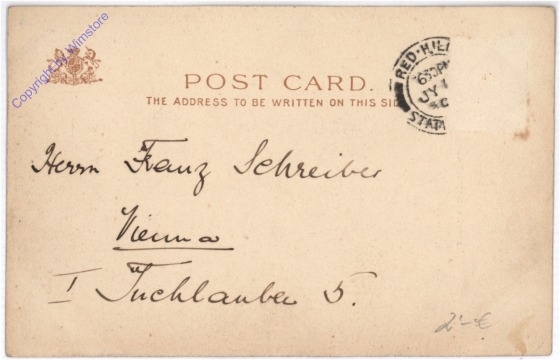 Copyright by Wimstore
POST CARD.
THE ADDRESS TO BE WRITTEN ON THIS SID
RED-HILL
630PM
JY
STAT
Herrn Franz Schreiber
Vienna
I Tuchlauben 5.
2'-€